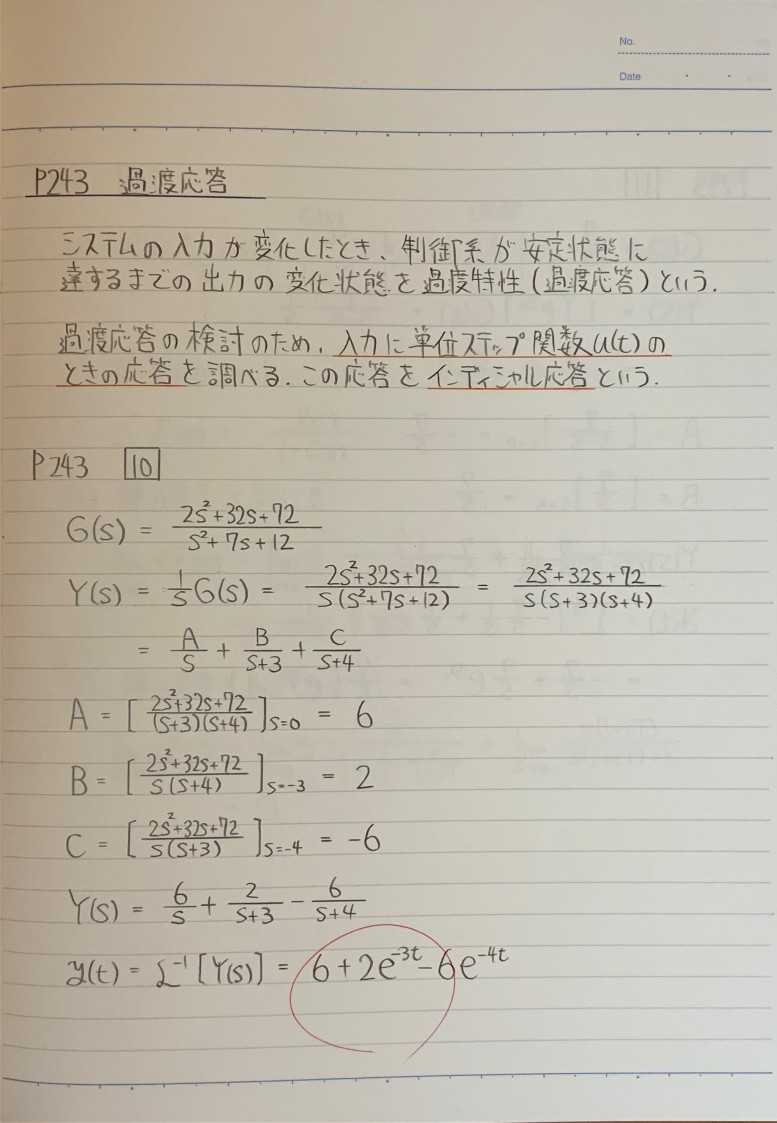 No.
Date
P243 過渡応答
システムの入力が変化したとき、制御系が安定状態に
達するまでの出力の変化状態を過渡特性(過渡応答)という.
過渡応答の検討のため、入力に単位ステップ関数u(t)の
ときの応答を調べる. この応答をインディシャル応答という.
P243 10
G(s) = (2s²+32s+72)/(s²+7s+12)
Y(s) = 1/s G(s) = (2s²+32s+72)/(s(s²+7s+12)) = (2s²+32s+72)/(s(s+3)(s+4))
= A/s + B/(s+3) + C/(s+4)
A = [(2s²+32s+72)/((s+3)(s+4))]s=0 = 6
B = [(2s²+32s+72)/(s(s+4))]s=-3 = 2
C = [(2s²+32s+72)/(s(s+3))]s=-4 = -6
Y(s) = 6/s + 2/(s+3) - 6/(s+4)
y(t) = ℒ⁻¹[Y(s)] = 6+2e^{-3t}-6e^{-4t}